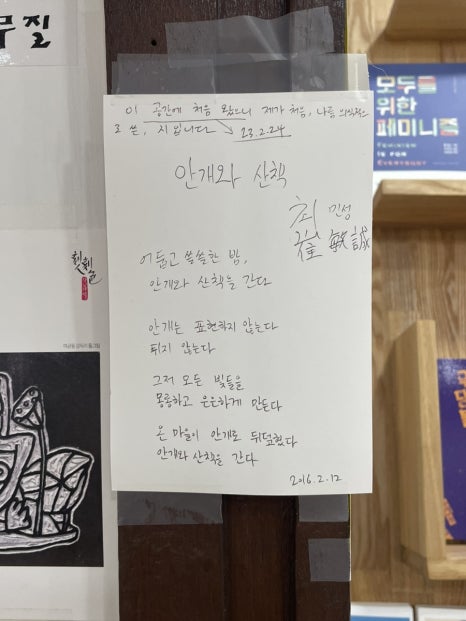 이 공간에 처음 왔으니 제가 처음, 나름 의식적으
로 쓴, 시 입니다 → 23.2.24
안개와 산책
최 민성
崔 敏誠
어둡고 쓸쓸한 밤,
안개와 산책을 간다
안개는 표현하지 않는다
튀지 않는다
그저 모든 빛들을
몽롱하고 은은하게 만든다
온 마을이 안개로 뒤덮혔다
안개와 산책을 간다
2016.2.12
모두를
위한
페미니즘
IS FOR